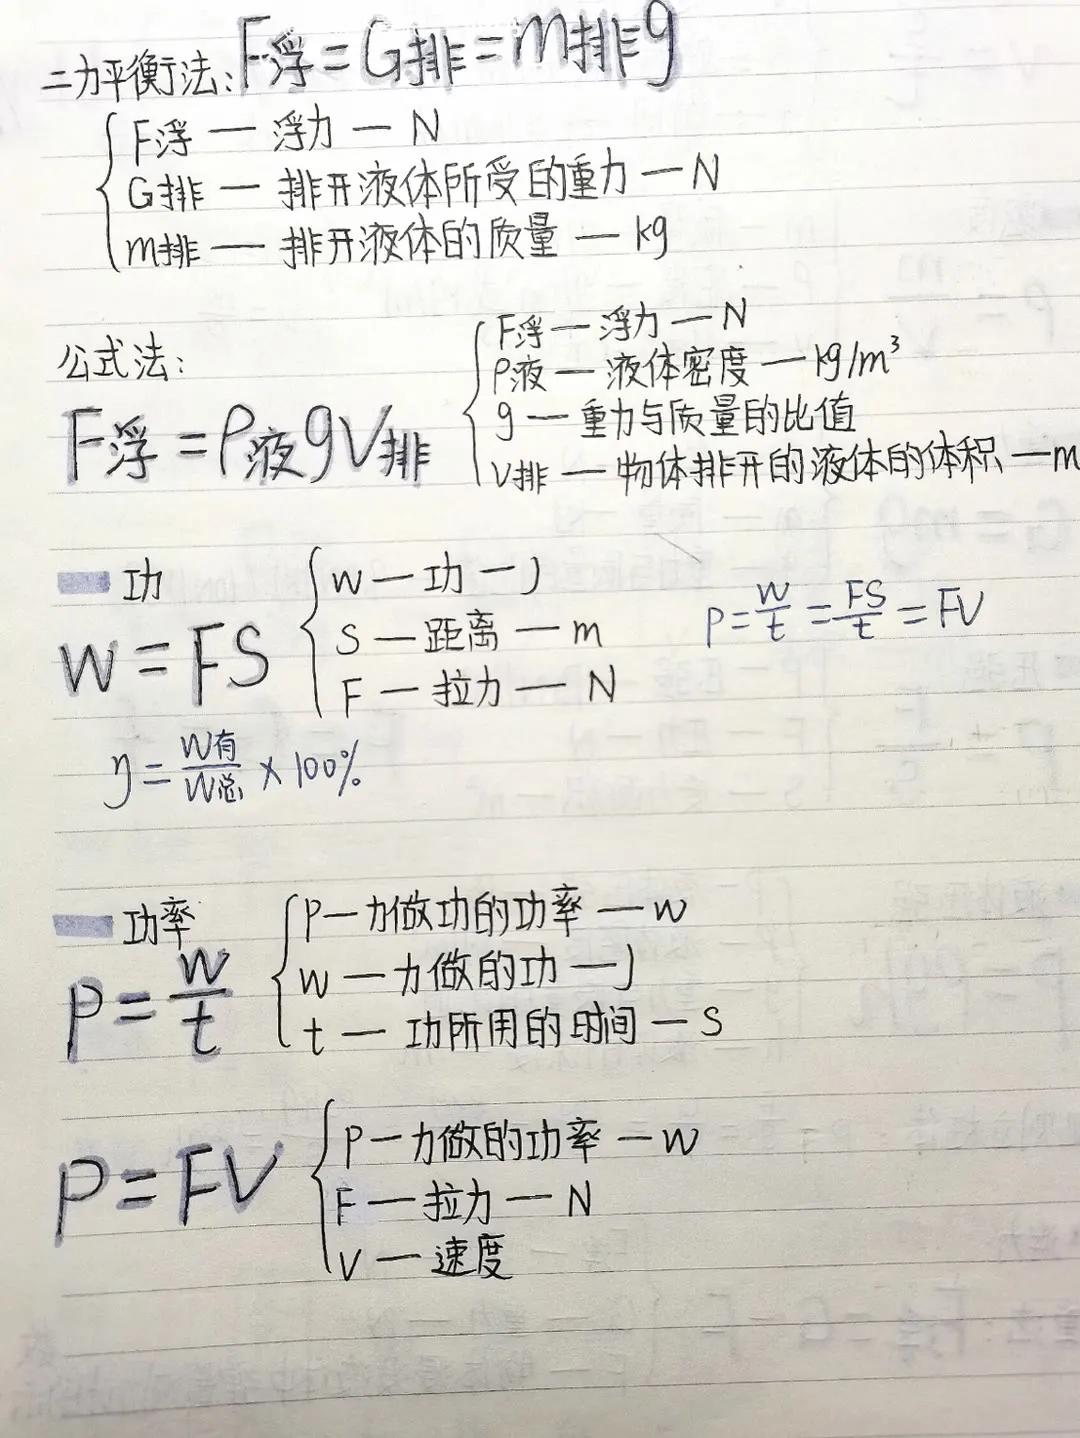 二力平衡法: F浮 = G排 = m排g
F浮 — 浮力 — N
G排 — 排开液体所受的重力 — N
m排 — 排开液体的质量 — kg
公式法:
F浮 = ρ液gV排
F浮 — 浮力 — N
ρ液 — 液体密度 — kg/m³
g — 重力与质量的比值
V排 — 物体排开的液体的体积 — m
功
W = FS
W — 功 — J
S — 距离 — m
F — 拉力 — N
P = W/t = FS/t = FV
η = W有/W总 × 100%
功率
P = W/t
P — 力做功的功率 — w
W — 力做的功 — J
t — 功所用的时间 — S
P = FV
P — 力做的功率 — w
F — 拉力 — N
V — 速度